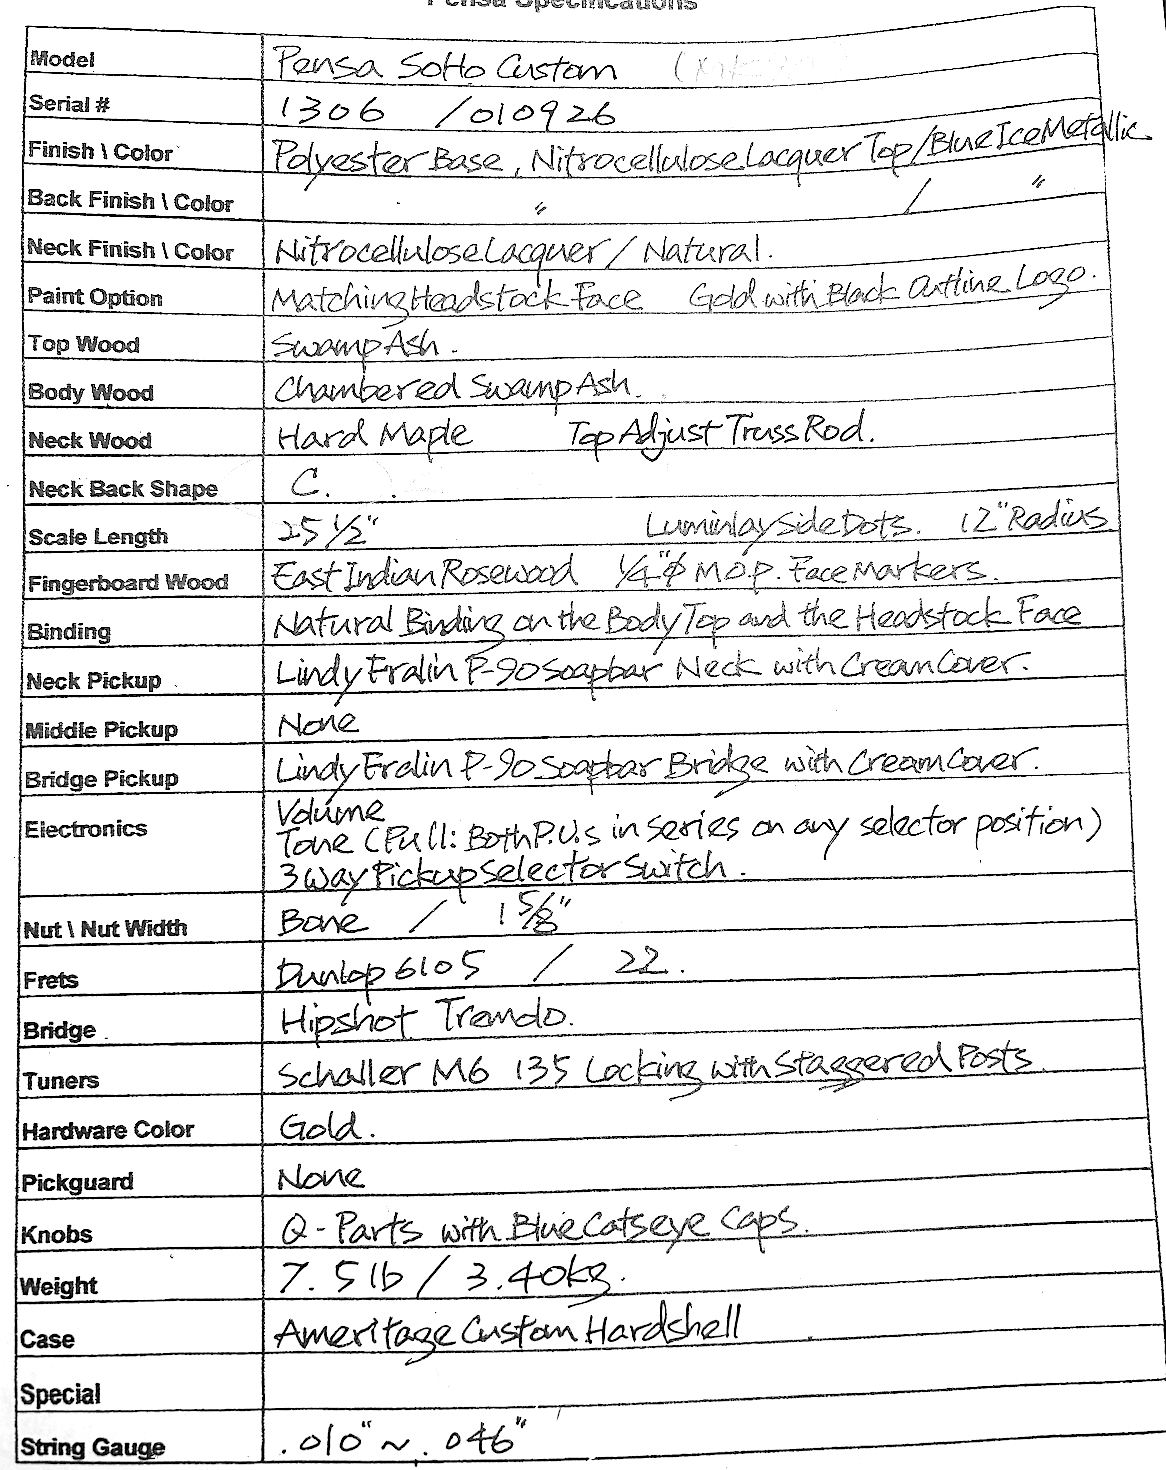 Pensa Specifications
Model Pensa SoHo Custom
Serial # 1306 /010926
Finish \ Color Polyester Base, Nitrocellulose Lacquer Top/Blue Ice Metallic
Back Finish \ Color 〃 / 〃
Neck Finish \ Color Nitrocellulose Lacquer / Natural.
Paint Option Matching Headstock Face Gold with Black Outline Logo.
Top Wood Swamp Ash.
Body Wood Chambered Swamp Ash.
Neck Wood Hard Maple Top Adjust Truss Rod.
Neck Back Shape C.
Scale Length 25 1/2" Luminlay Side Dots. 12" Radius
Fingerboard Wood East Indian Rosewood 1/4"φ M.O.P. Face Markers.
Binding Natural Binding on the Body Top and the Headstock Face
Neck Pickup Lindy Fralin P-90 Soapbar Neck with Cream Cover.
Middle Pickup None
Bridge Pickup Lindy Fralin P-90 Soapbar Bridge with Cream Cover.
Electronics Volume
Tone (Pull: Both P.U.s in series on any selector position)
3 Way Pickup Selector Switch.
Nut \ Nut Width Bone / 1 5/8"
Frets Dunlop 6105 / 22.
Bridge Hipshot Tremolo.
Tuners Schaller M6 135 Locking with Staggered Posts
Hardware Color Gold.
Pickguard None
Knobs Q-Parts with Blue Catseye Caps.
Weight 7.5 lb / 3.40kg.
Case Ameritage Custom Hardshell
Special
String Gauge .010" ~ .046"